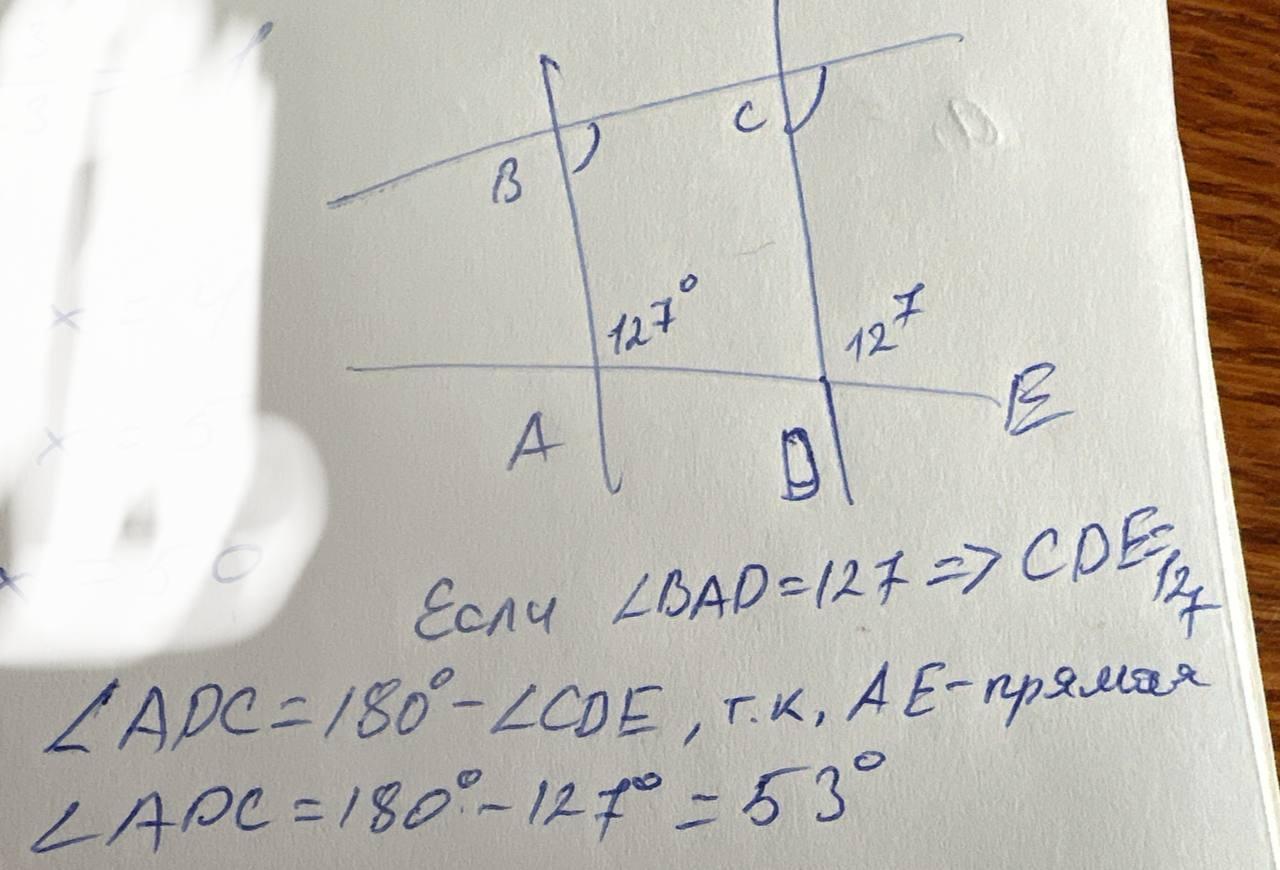 B
C
127°
127
A
D
E
Если ∠BAD=127 => CDE=127
∠ADC=180°-∠CDE, т.к. AE-прямая
∠ADC=180°-127°=53°